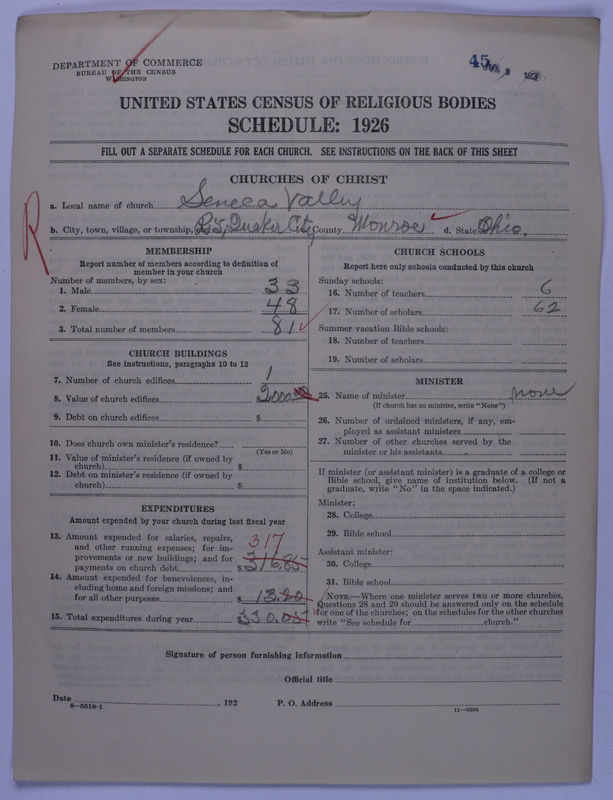 DEPARTMENT OF COMMERCE
BUREAU OF THE CENSUS
WASHINGTON
45
UNITED STATES CENSUS OF RELIGIOUS BODIES
SCHEDULE: 1926
FILL OUT A SEPARATE SCHEDULE FOR EACH CHURCH. SEE INSTRUCTIONS ON THE BACK OF THIS SHEET
CHURCHES OF CHRIST
a. Local name of church Seneca Valley
b. City, town, village, or township, R 5, Quaker City County Monroe d. State Ohio.
R
MEMBERSHIP
Report number of members according to definition of
member in your church
Number of members, by sex:
1. Male 33
2. Female 48
3. Total number of members 81
CHURCH BUILDINGS
See instructions, paragraphs 10 to 12
7. Number of church edifices 1
8. Value of church edifices 2000
9. Debt on church edifices $
10. Does church own minister's residence?
(Yes or No)
11. Value of minister's residence (if owned by
church) $
12. Debt on minister's residence (if owned by
church) $
EXPENDITURES
Amount expended by your church during last fiscal year
13. Amount expended for salaries, repairs,
and other running expenses; for im-
provements or new buildings; and for
payments on church debt 317 $316.85
14. Amount expended for benevolences, in-
cluding home and foreign missions; and
for all other purposes $13.20
15. Total expenditures during year $330.05
CHURCH SCHOOLS
Report here only schools conducted by this church
Sunday schools:
16. Number of teachers 6
17. Number of scholars 62
Summer vacation Bible schools:
18. Number of teachers
19. Number of scholars
MINISTER
25. Name of minister none
(If church has no minister, write "None")
26. Number of ordained ministers, if any, em-
ployed as assistant ministers
27. Number of other churches served by the
minister or his assistants
If minister (or assistant minister) is a graduate of a college or
Bible school, give name of institution below. (If not a
graduate, write "No" in the space indicated.)
Minister:
28. College
29. Bible school
Assistant minister:
30. College
31. Bible school
NOTE.—Where one minister serves two or more churches,
Questions 28 and 29 should be answered only on the schedule
for one of the churches; on the schedules for the other churches
write "See schedule for church."
Signature of person furnishing information
Official title
Date , 192 P. O. Address
8—5518-1 11—9204